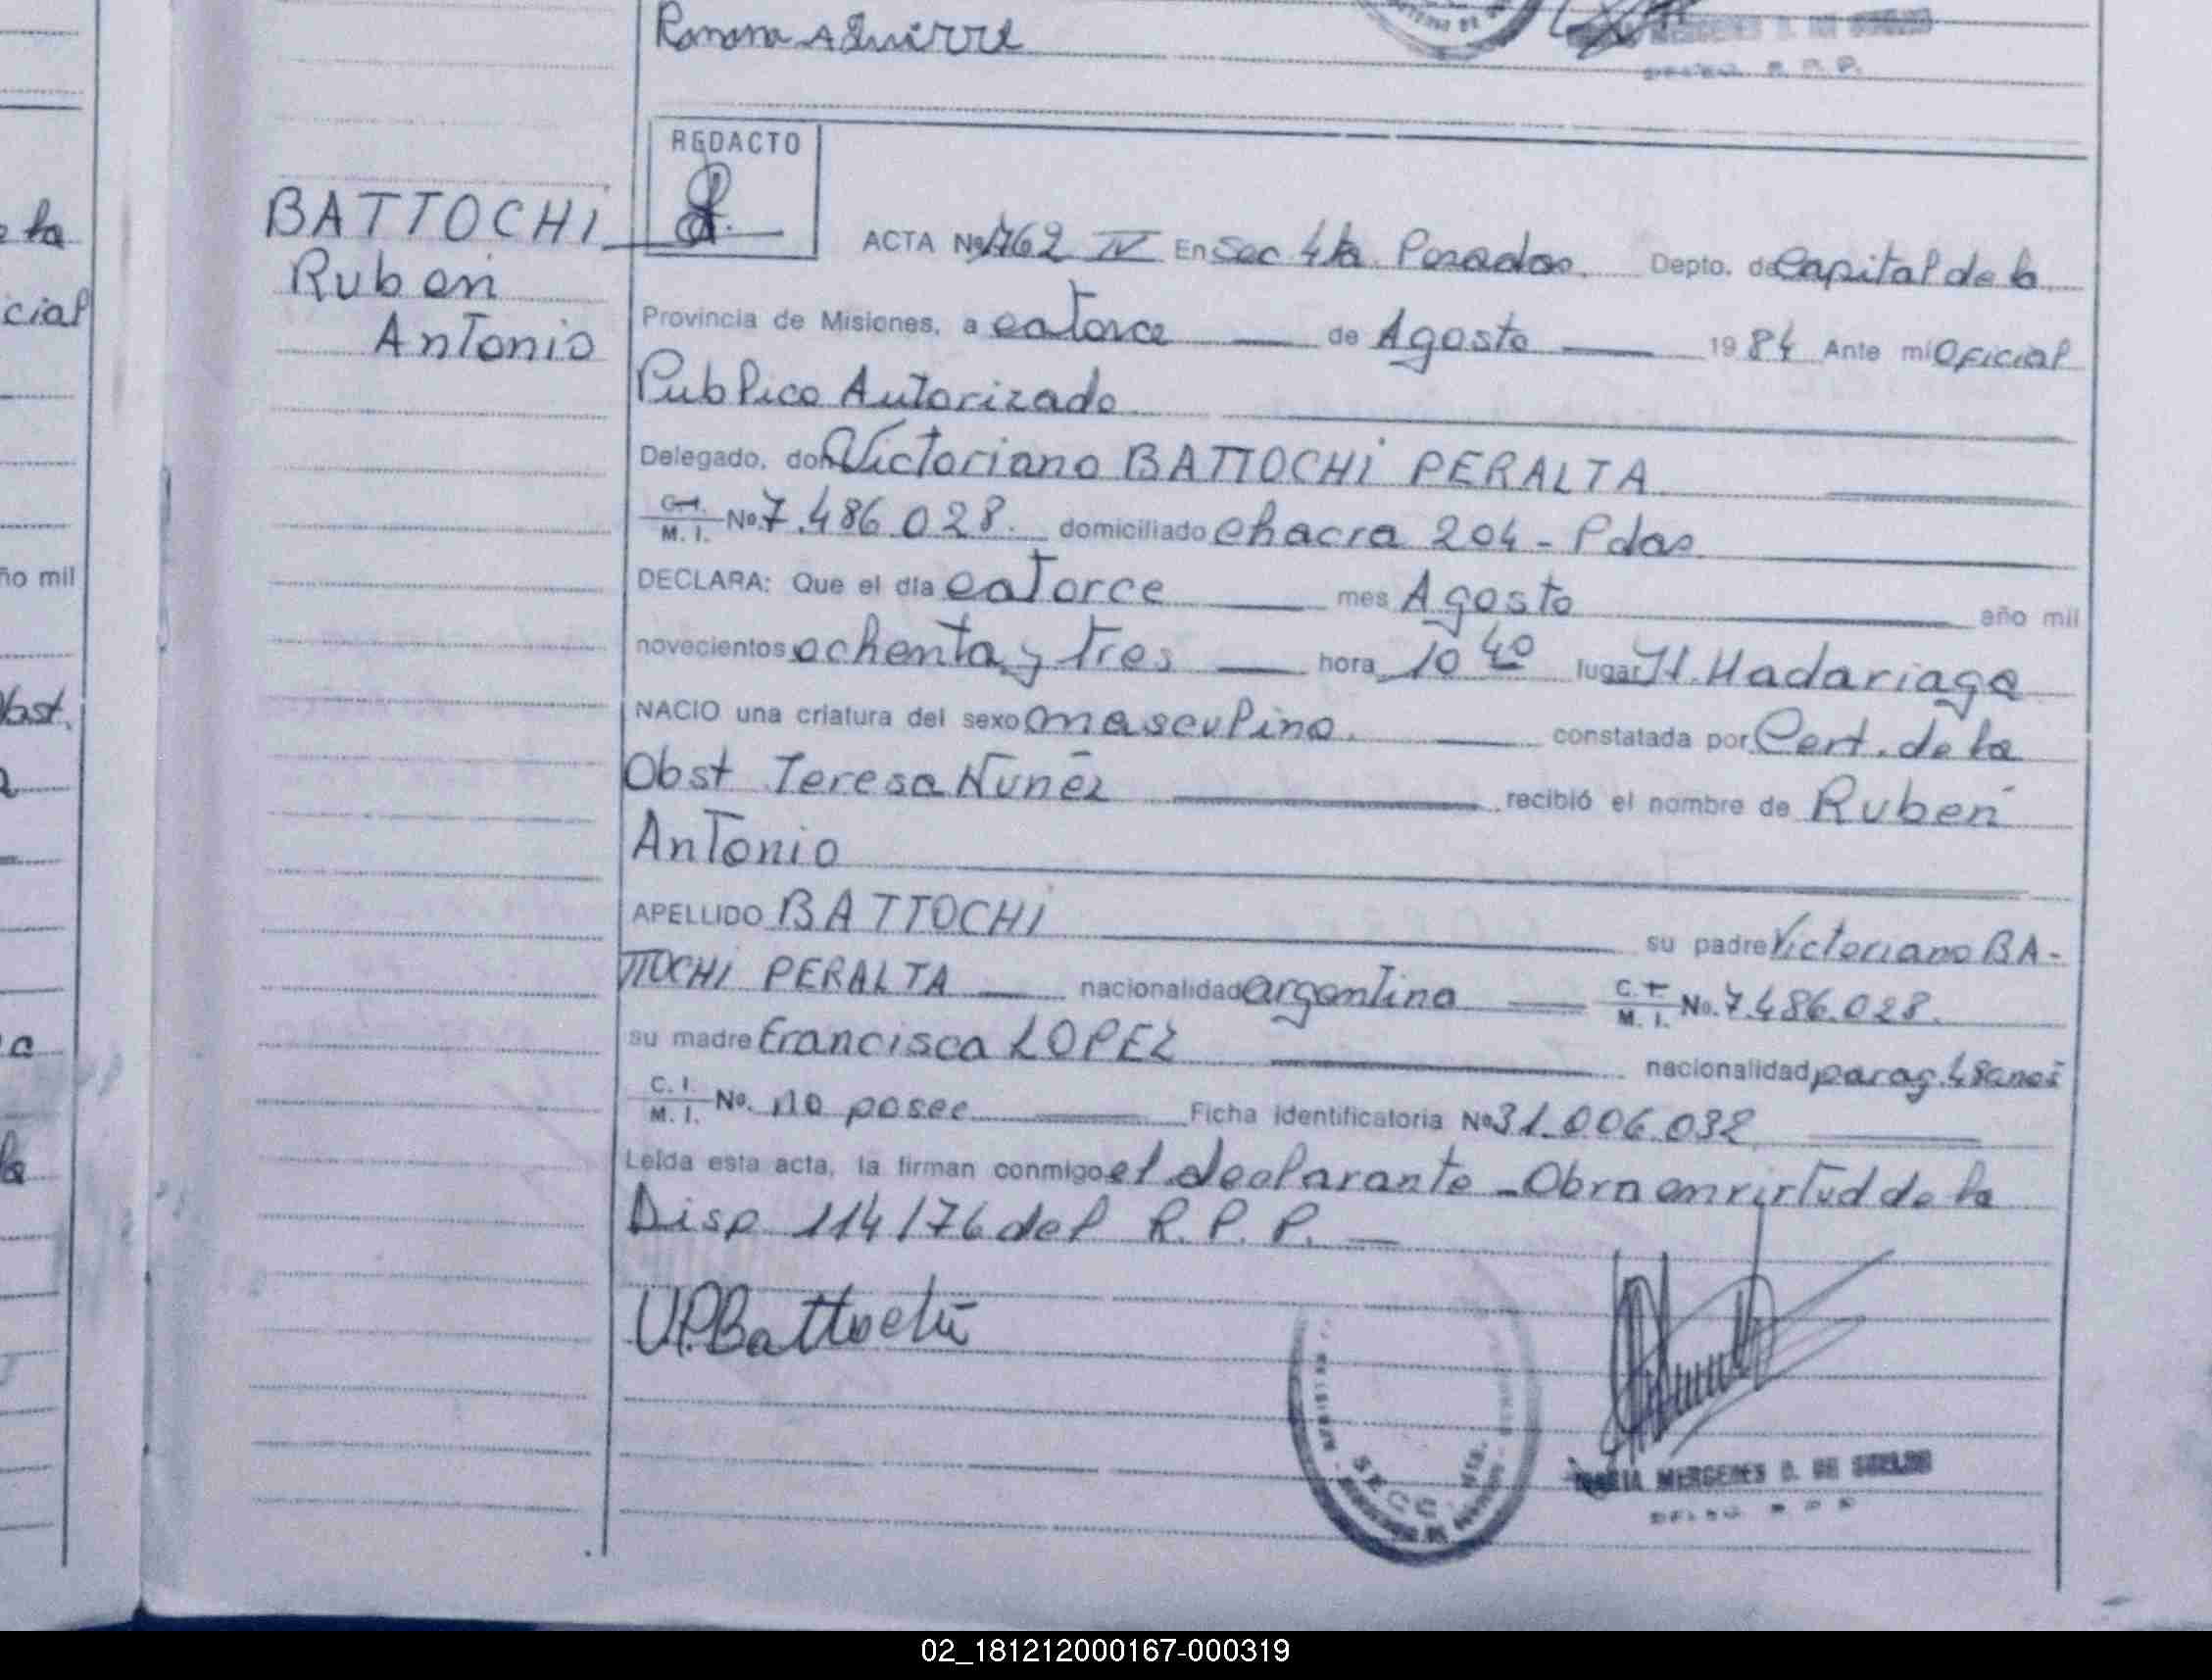 Ramona Aguirre
R. P. P.
REDACTO
BATTOCHI
Ruben
Antonio
ACTA Nº 1762 IV En Sec 4ta Posadas. Depto. de Capital de la
Provincia de Misiones, a catorce de Agosto 1984 Ante mi Oficial
Publico Autorizado
Delegado, don Victoriano BATTOCHI PERALTA
C.I. M. I. No. 7.486.028. domiciliado chacra 204 - Pdas
DECLARA: Que el día catorce mes Agosto año mil
novecientos ochenta y tres hora 10 40 lugar H. Madariaga
NACIO una criatura del sexo masculino. constatada por Cert. de la
Obst Teresa Nuñez recibió el nombre de Ruben
Antonio
APELLIDO BATTOCHI su padre Victoriano BA-
TTOCHI PERALTA nacionalidad argentina C. I. M. I. No. 7.486.028.
su madre Francisca LOPEZ nacionalidad parag. 48 anos
C. I. M. I. No. no posee Ficha Identificatoria Nº 31.006.032
Leída esta acta, la firman conmigo el declarante - Obra en virtud de la
Disp 114/76 del R. P. P.
V.P. Battochi
SECC 4ta.
MARIA MERCEDES D. DE
la
cial
ño mil
Obst.
a
la
02_181212000167-000319